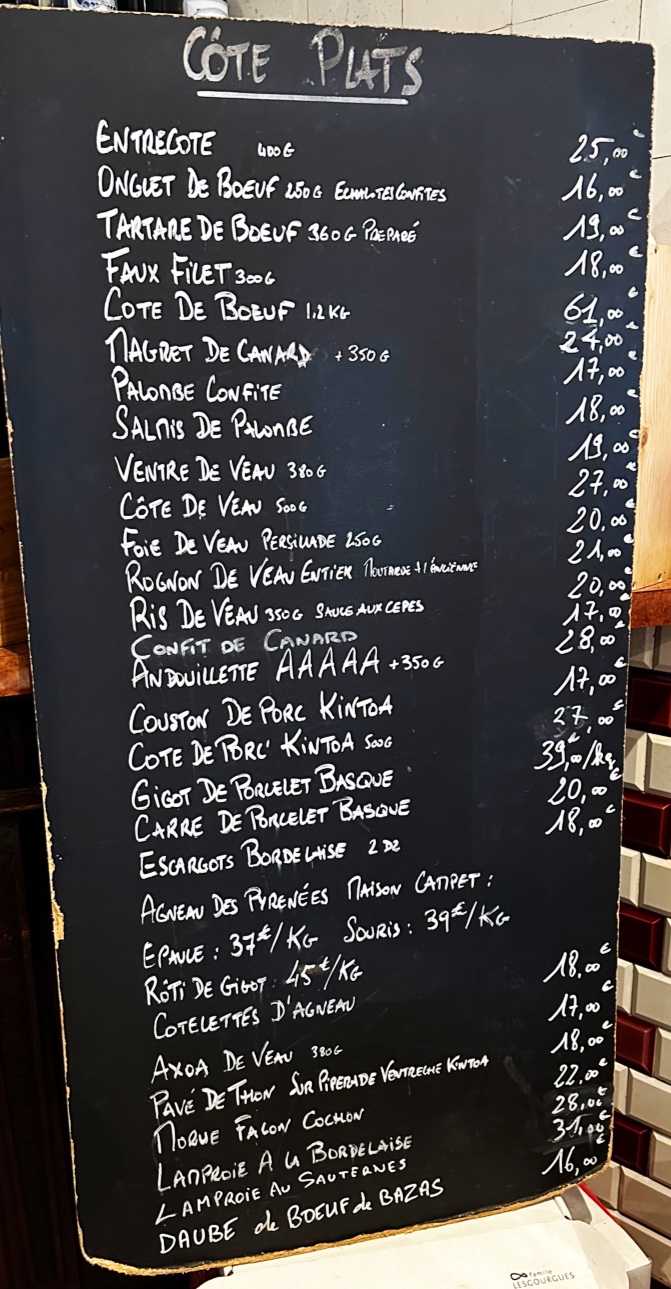 CÔTE PLATS
ENTRECOTE 400G 25,00€
ONGLET DE BOEUF 250G ECHALOTES CONFITES 16,00€
TARTARE DE BOEUF 360G PREPARÉ 19,00€
FAUX FILET 300G 18,00€
COTE DE BOEUF 1.2KG 61,00€
MAGRET DE CANARD +350G 24,00€
PALOMBE CONFITE 17,00€
SALMIS DE PALOMBE 18,00€
VENTRE DE VEAU 380G 19,00€
CÔTE DE VEAU 500G 27,00€
FOIE DE VEAU PERSILLADE 250G 20,00€
ROGNON DE VEAU ENTIER MOUTARDE A L'ANCIENNE 21,00€
RIS DE VEAU 350G SAUCE AUX CEPES 20,00€
CONFIT DE CANARD 17,00€
ANDOUILLETTE AAAAA +350G 28,00€
COUSTON DE PORC KINTOA 17,00€
COTE DE PORC KINTOA 500G 27,00€
GIGOT DE PORCELET BASQUE 39,00€/kg
CARRE DE PORCELET BASQUE 20,00€
ESCARGOTS BORDELAISE 2DZ 18,00€
AGNEAU DES PYRENÉES MAISON CAMPET :
EPAULE : 37€/KG SOURIS : 39€/KG
RÔTI DE GIGOT : 45€/KG
COTELETTES D'AGNEAU 18,00€
AXOA DE VEAU 380G 17,00€
PAVÉ DE THON SUR PIPERADE VENTRECHE KINTOA 18,00€
MORUE FAÇON COCHON 22,00€
LAMPROIE A LA BORDELAISE 28,00€
LAMPROIE AU SAUTERNES 31,00€
DAUBE de BOEUF de BAZAS 16,00€
famille
LESGOURGUES